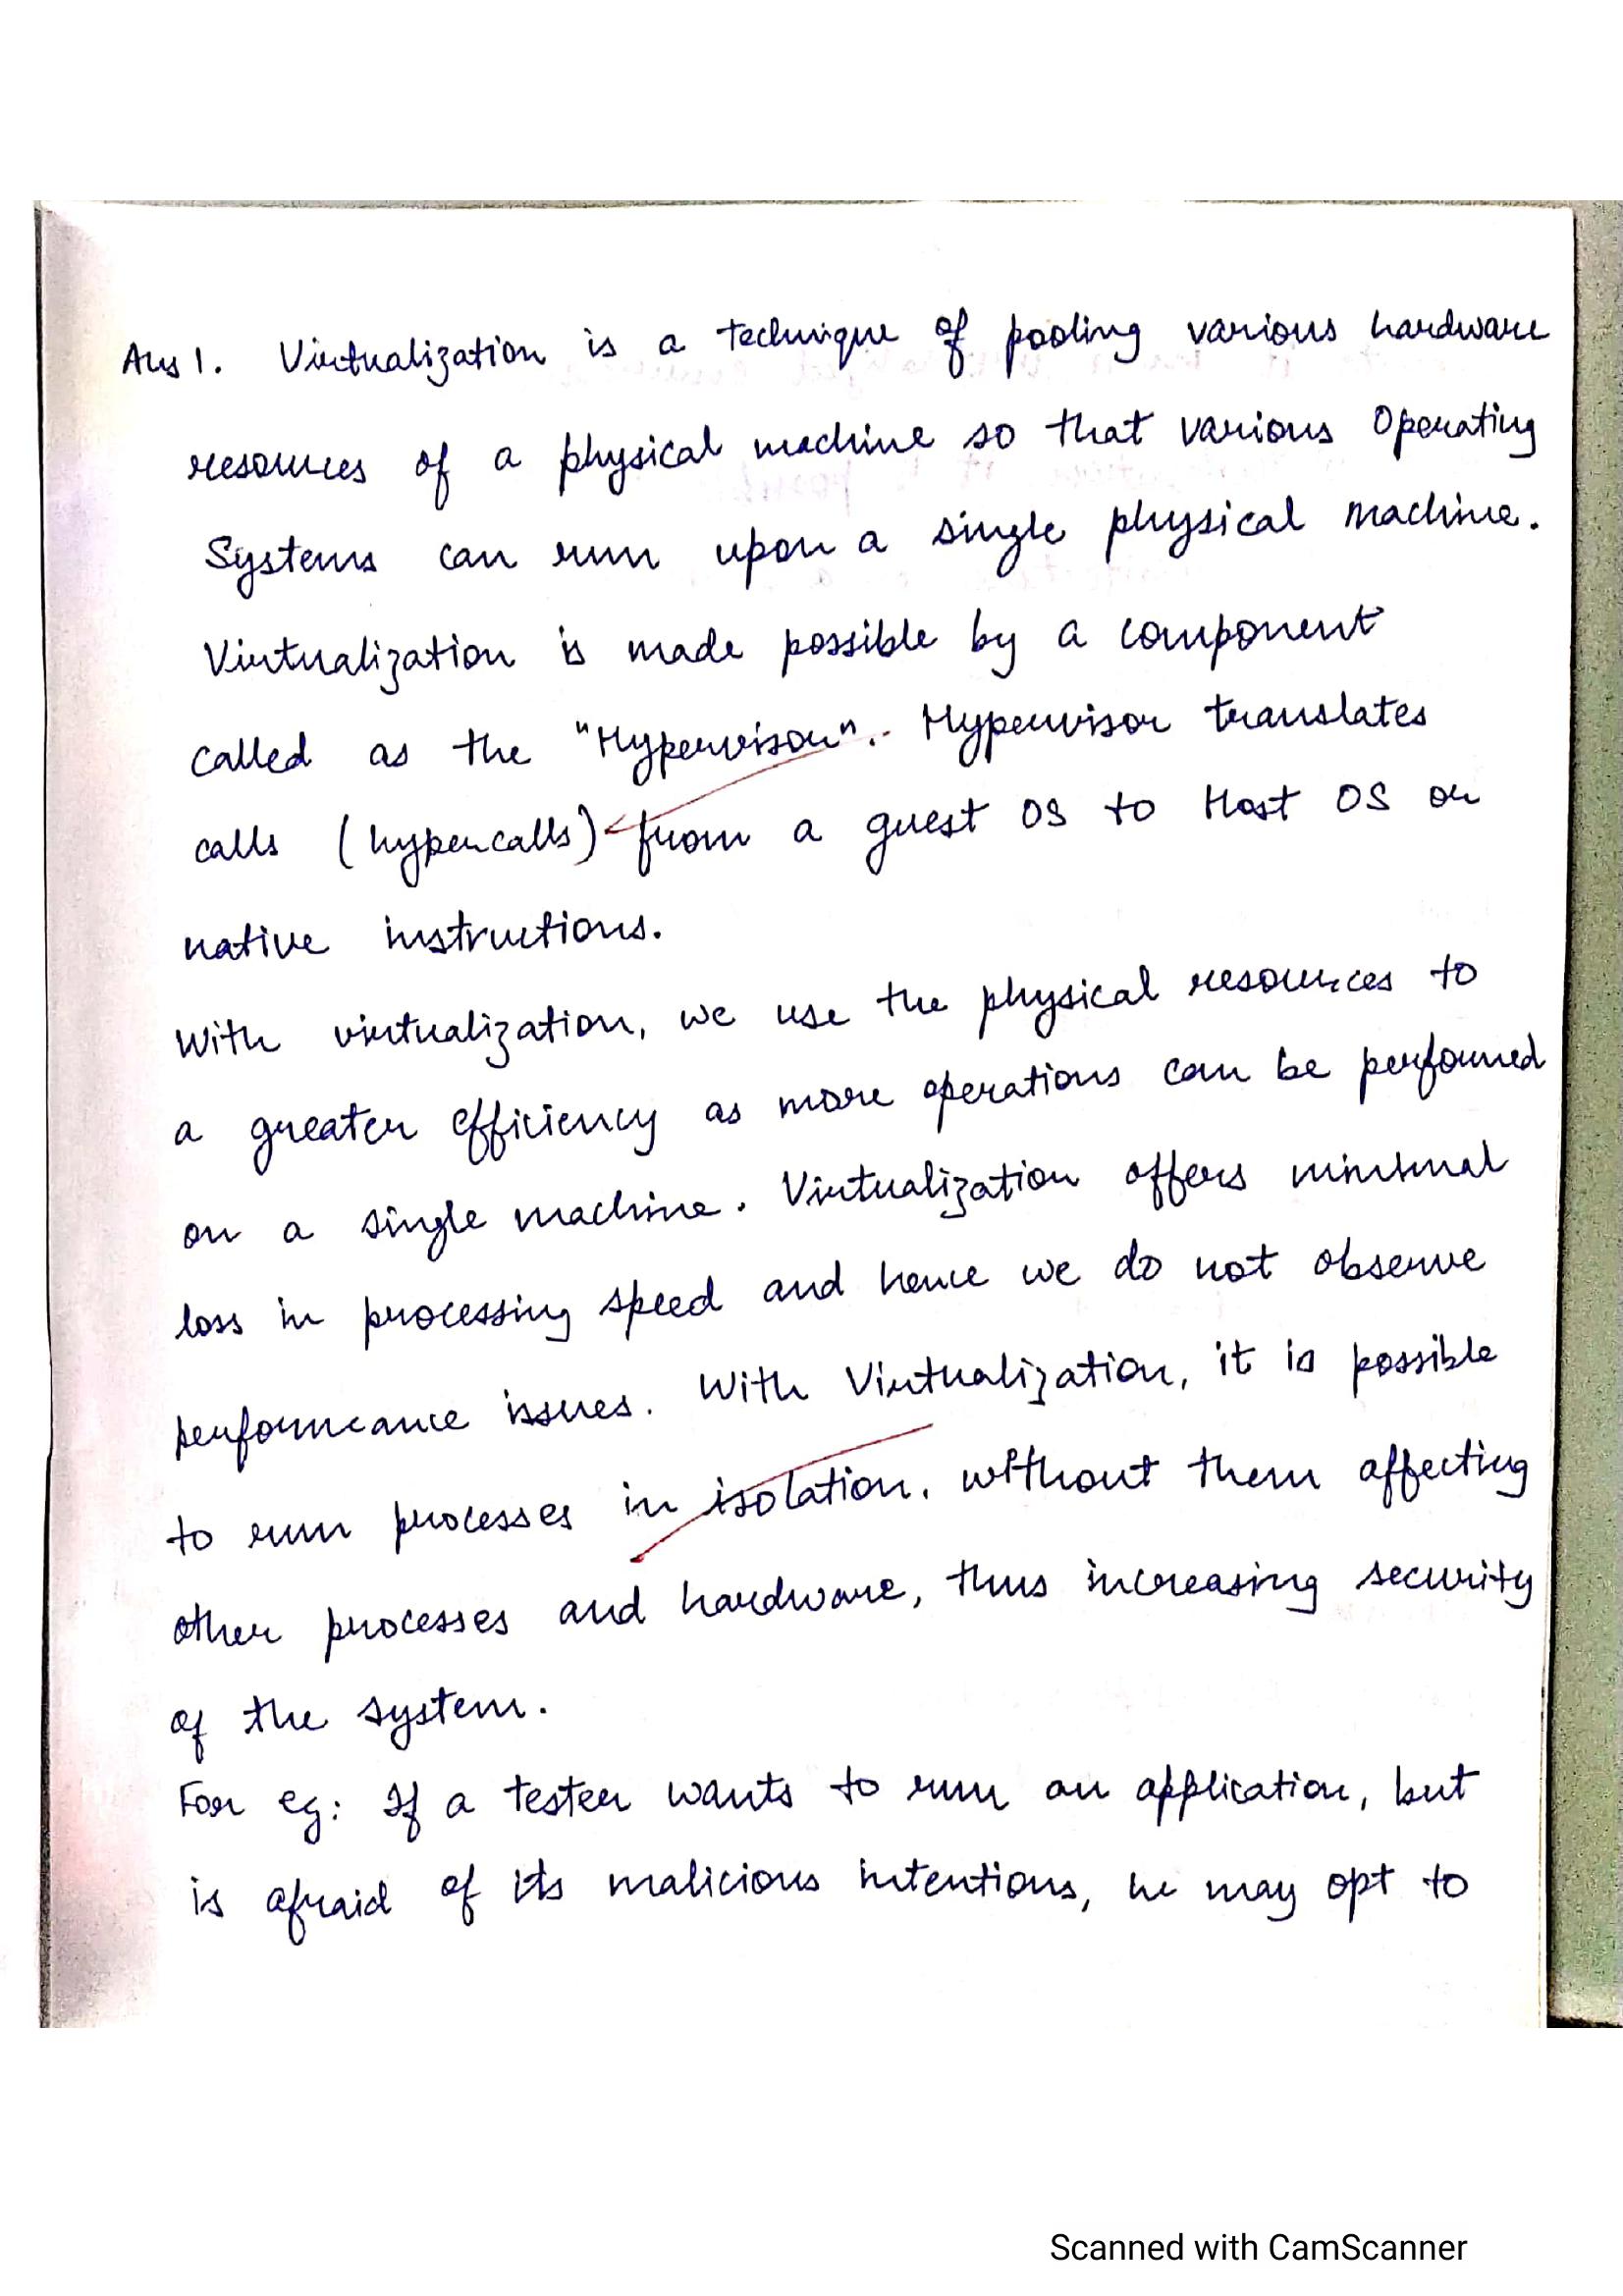 Ans 1. Virtualization is a technique of pooling various hardware
resources of a physical machine so that various Operating
Systems can run upon a single physical machine.
Virtualization is made possible by a component
called as the "Hypervisor". Hypervisor translates
calls (hypercalls) from a guest OS to Host OS or
native instructions.
With virtualization, we use the physical resources to
a greater efficiency as more operations can be performed
on a single machine. Virtualization offers minimal
loss in processing speed and hence we do not observe
performance issues. With Virtualization, it is possible
to run processes in isolation, without them affecting
other processes and hardware, thus increasing security
of the system.
For eg: If a tester wants to run an application, but
is afraid of its malicious intentions, he may opt to
Scanned with CamScanner